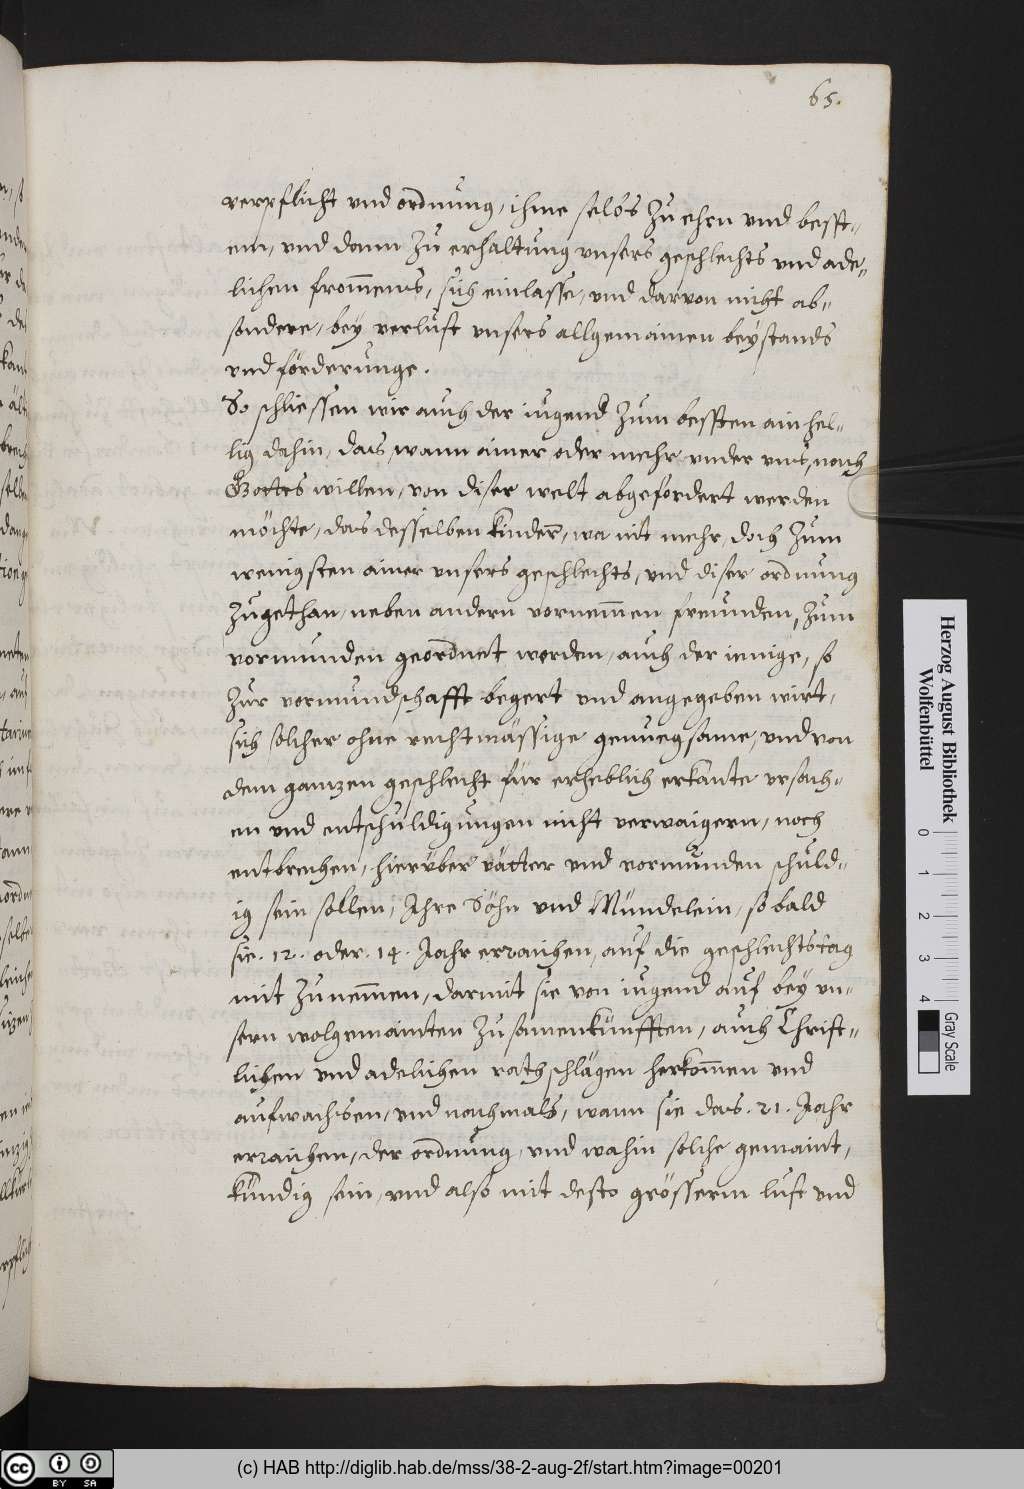 65.
verpflicht vnd ordnung, ihme selbs zu ehrn vnd besst-
em, vnd dann zu erhaltung vnsers geschlechts vnd ade-
lichen frommens, sich einlasse, vnd darvon nicht ab-
sondere, bey verlust vnsers allgemainen beystands
vnd förderunge.
So schliessen wir auch der iugend zum bessten ainhel-
lig dahin, das, wann ainer oder mehr vnder vns, nach
Gottes willen, von diser welt abgefordert werden
möchte, das desselben kindern, wa nit mehr, doch zum
wenigsten ainer vnsers geschlechts, vnd diser ordnung
zugethan, neben andern vornemmen freunden, zum
vormunden geordnet werden, auch der ienige, so
zur vormundschafft begert vnd angegeben wirt,
sich solcher ohne rechtmässige genuegsame, vnd von
dem ganzen geschlecht für erheblich erkante vrsach-
en vnd entschuldigungen nicht verwaigern, noch
entbrechen, hierüber vätter vnd vormunden schuld-
ig sein sollen, Ihre Söhn vnd Mündelein, so bald
sie .12. oder .14. Jahr erraichen, auf die geschlechtstag
mit zunemmen, darmit sie von iugend auf bey vn-
sern wolgemainten zusamenkünfften, auch Christ-
lichen vnd adelichen rathschlägen herkommen vnd
aufwachsen, vnd nachmals, wann sie das .21. Jahr
erraichen, der ordnung, vnd wahin solche gemaint,
kündig sein, vnd also mit desto grösserm lust vnd
Herzog August Bibliothek
Wolfenbüttel
0 1 2 3 4
Gray Scale
(c) HAB http://diglib.hab.de/mss/38-2-aug-2f/start.htm?image=00201
cc BY SA